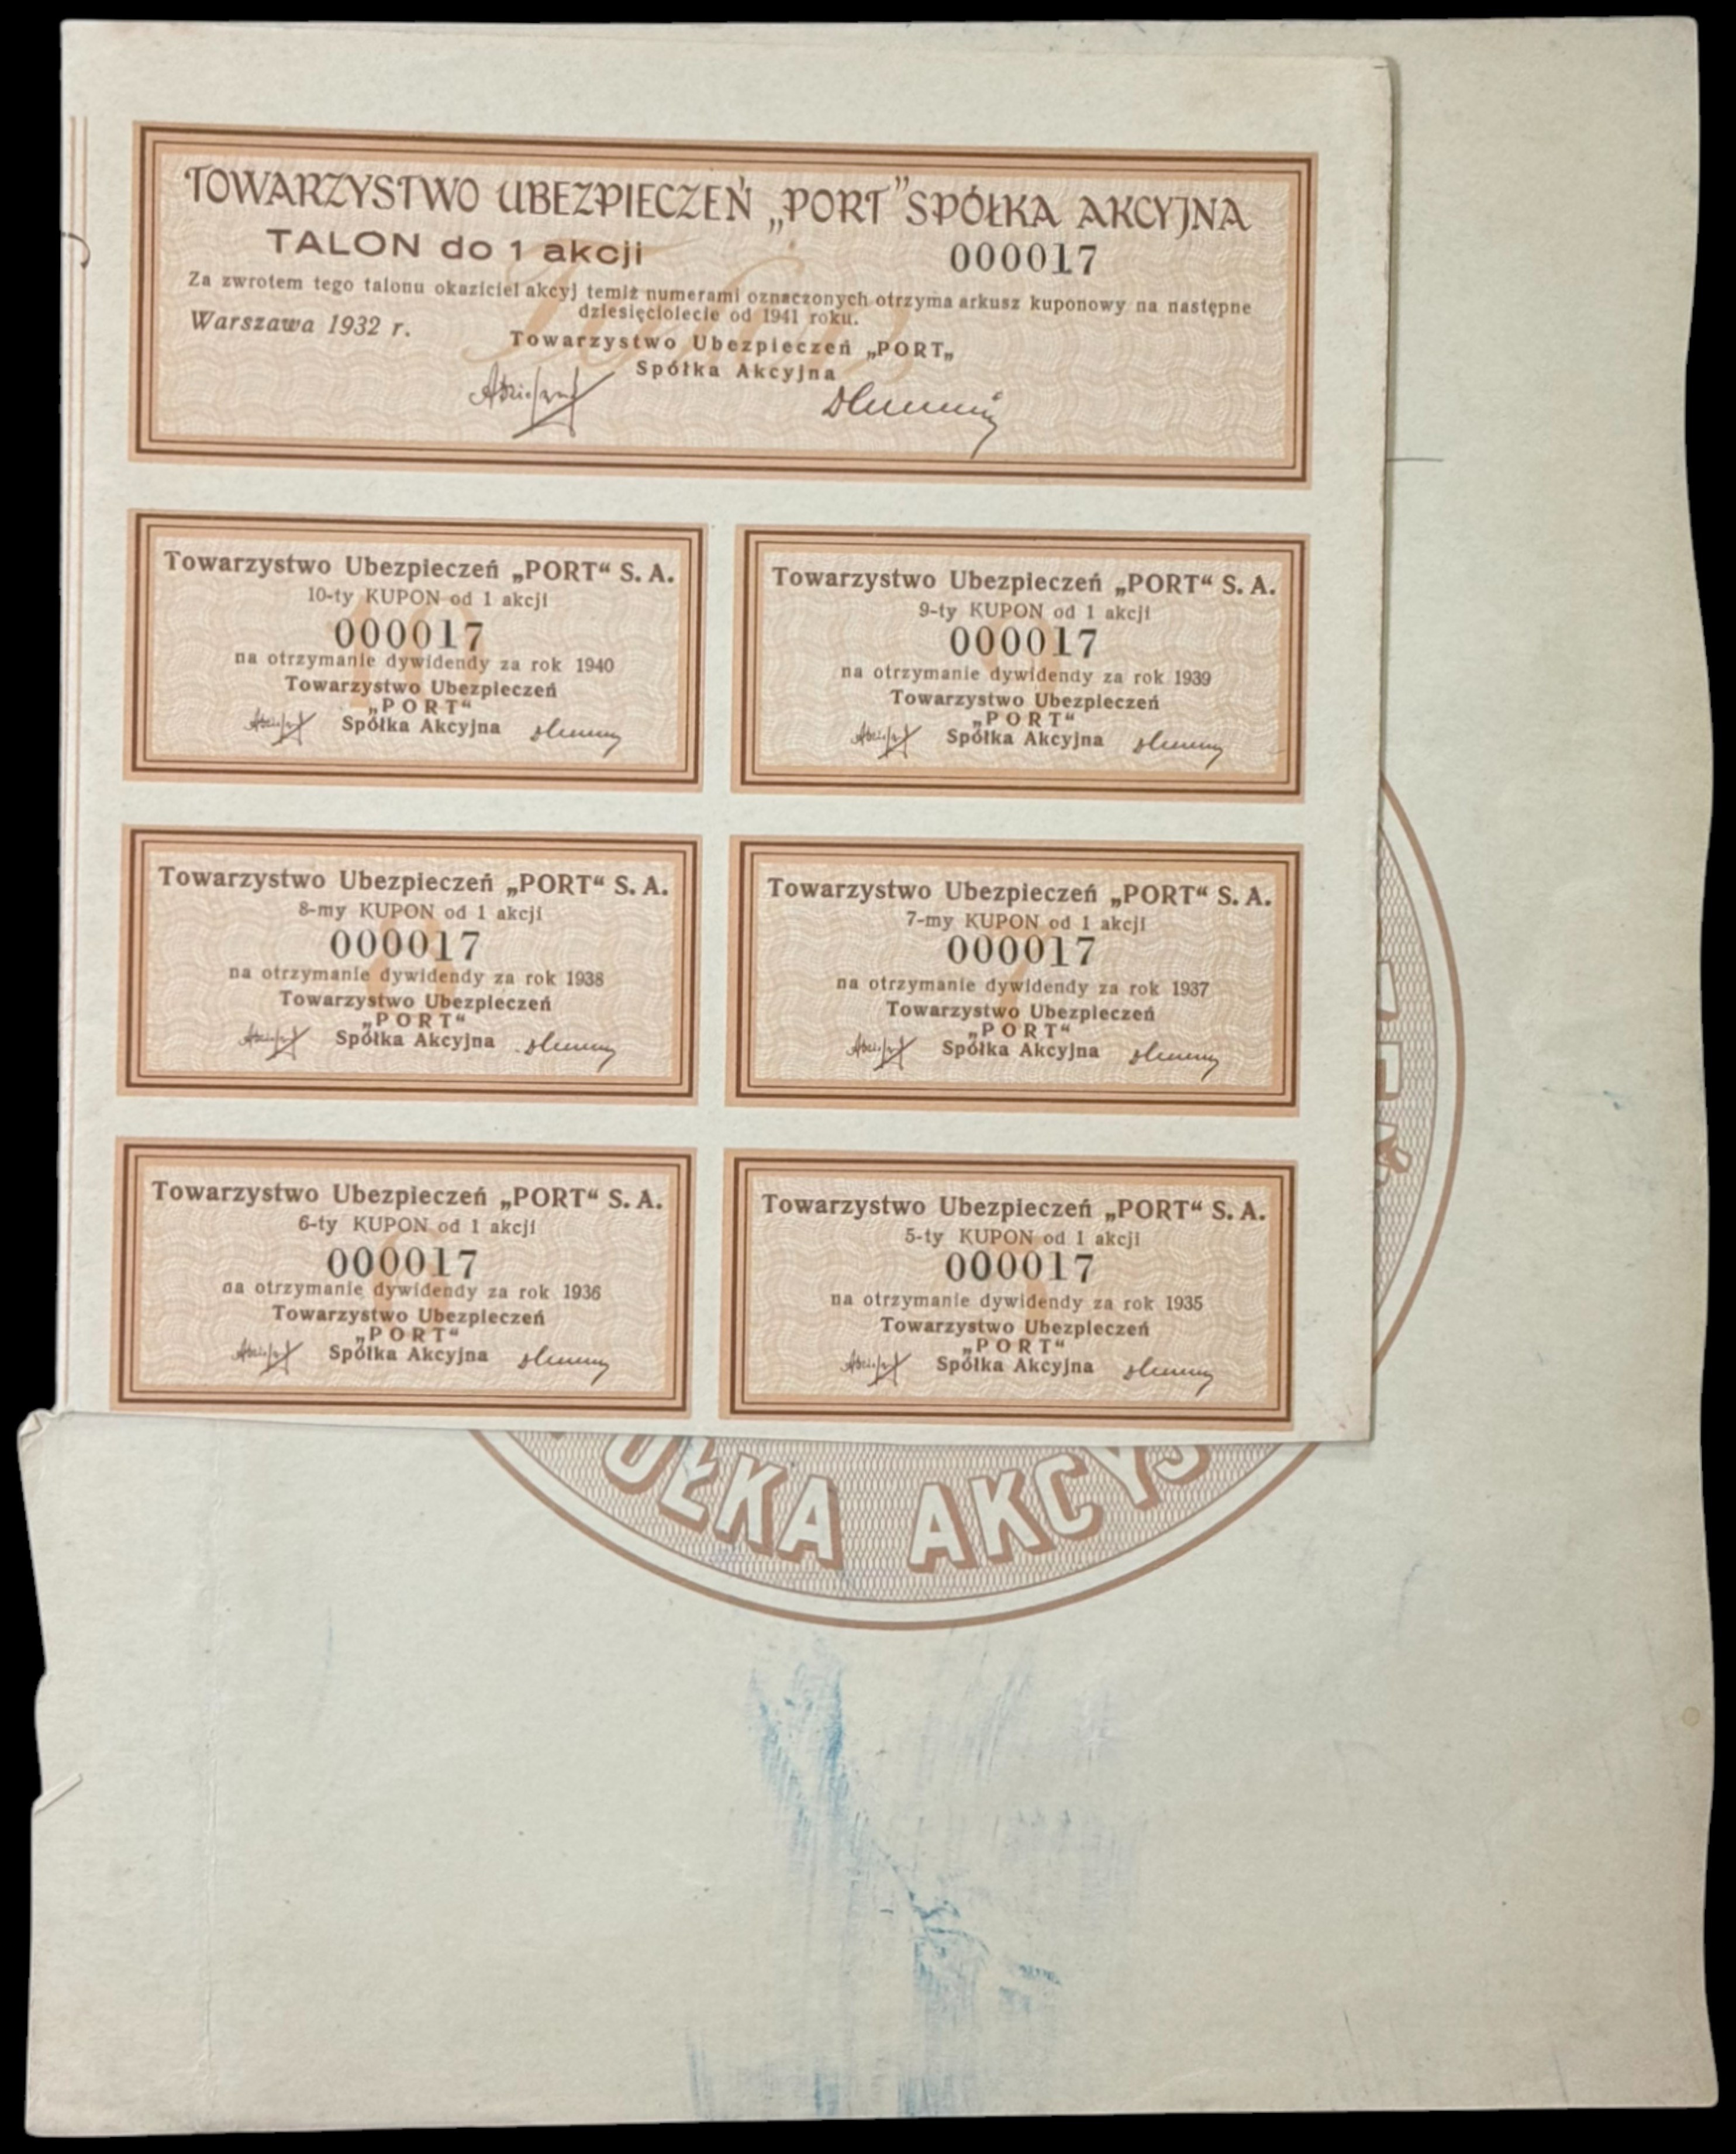 TOWARZYSTWO UBEZPIECZEŃ „PORT” SPÓŁKA AKCYJNA
TALON do 1 akcji 000017
Za zwrotem tego talonu okaziciel akcyj temiż numerami oznaczonych otrzyma arkusz kuponowy na następne
dziesięciolecie od 1941 roku.
Warszawa 1932 r.
Towarzystwo Ubezpieczeń „PORT„
Spółka Akcyjna
Towarzystwo Ubezpieczeń „PORT“ S. A.
10-ty KUPON od 1 akcji
000017
na otrzymanie dywidendy za rok 1940
Towarzystwo Ubezpieczeń
„PORT“
Spółka Akcyjna
Towarzystwo Ubezpieczeń „PORT“ S. A.
9-ty KUPON od 1 akcji
000017
na otrzymanie dywidendy za rok 1939
Towarzystwo Ubezpieczeń
„PORT“
Spółka Akcyjna
Towarzystwo Ubezpieczeń „PORT“ S. A.
8-my KUPON od 1 akcji
000017
na otrzymanie dywidendy za rok 1938
Towarzystwo Ubezpieczeń
„PORT“
Spółka Akcyjna
Towarzystwo Ubezpieczeń „PORT“ S. A.
7-my KUPON od 1 akcji
000017
na otrzymanie dywidendy za rok 1937
Towarzystwo Ubezpieczeń
„PORT“
Spółka Akcyjna
Towarzystwo Ubezpieczeń „PORT“ S. A.
6-ty KUPON od 1 akcji
000017
na otrzymanie dywidendy za rok 1936
Towarzystwo Ubezpieczeń
„PORT“
Spółka Akcyjna
Towarzystwo Ubezpieczeń „PORT“ S. A.
5-ty KUPON od 1 akcji
000017
na otrzymanie dywidendy za rok 1935
Towarzystwo Ubezpieczeń
„PORT“
Spółka Akcyjna
ÓŁKA AKCYJ